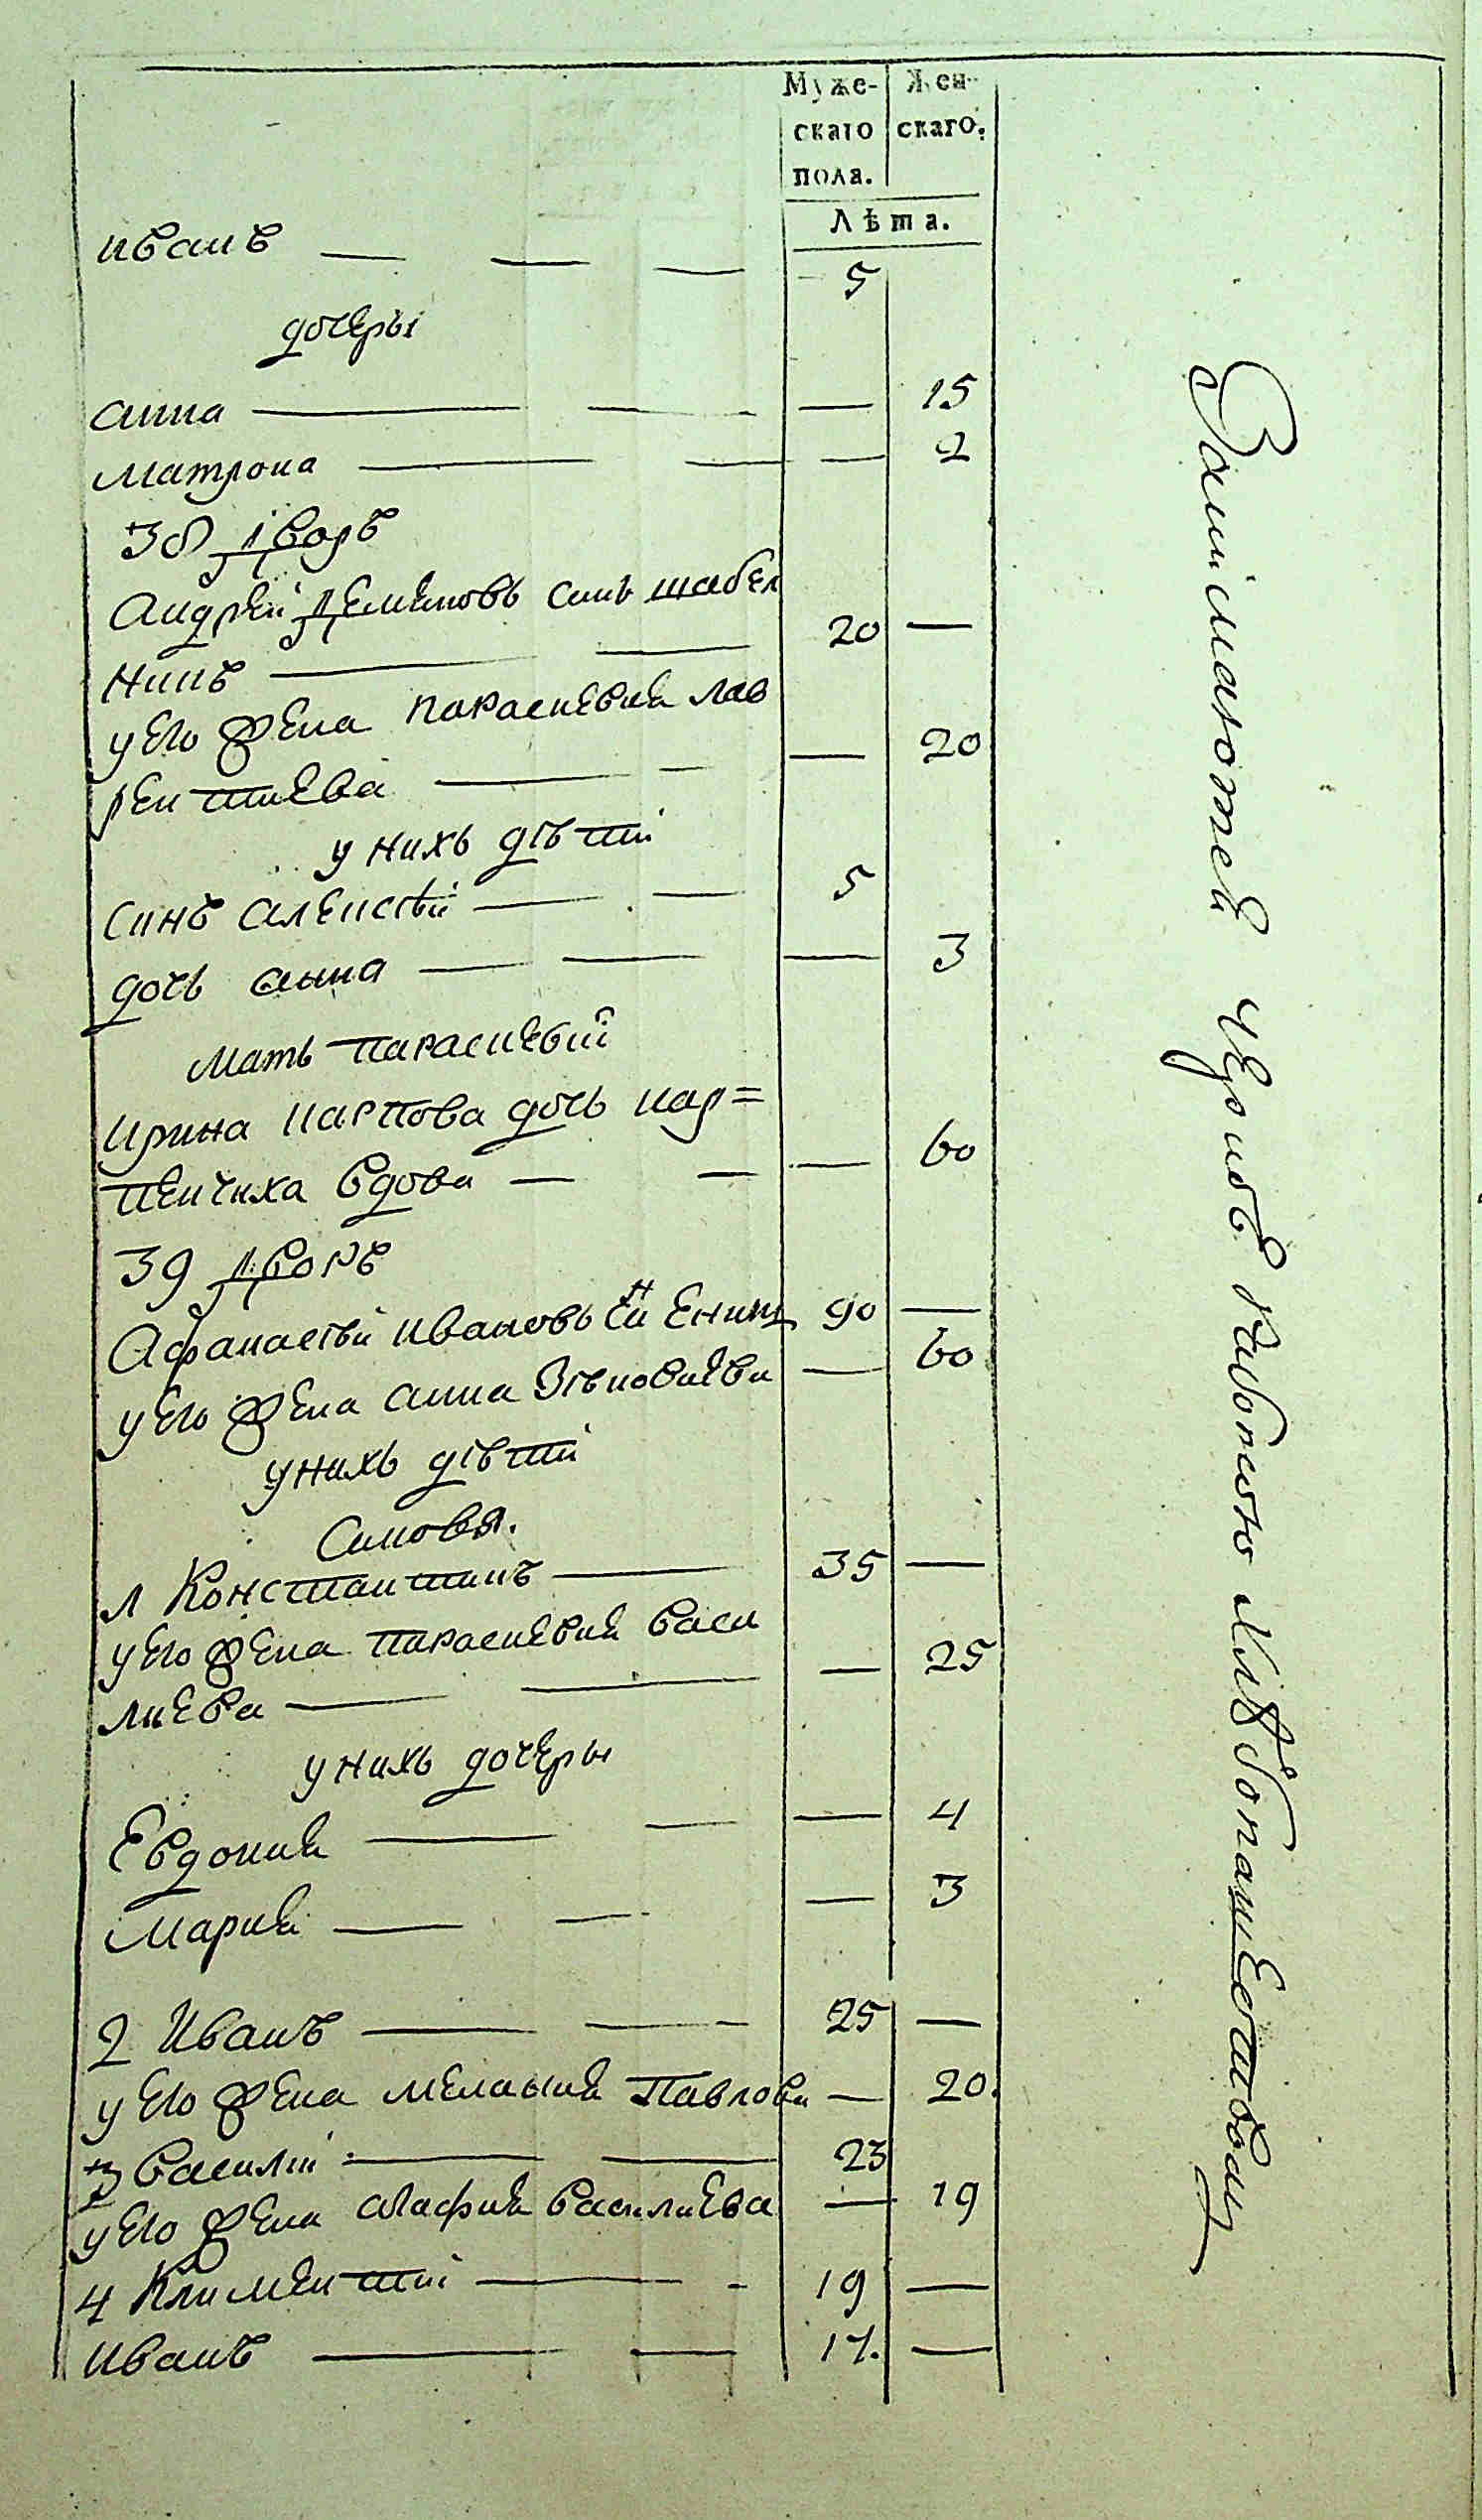 Муже-
скаго
пола.
Жен-
скаго.
Лѣта.
иванъ — — — 5
дочеры
анна — — — 15
матрона — — — 2
38 дворъ
Андрей Деменовъ синъ шабел
нинъ — — 20 —
у его жена параскевия лав
рентиева — — — 20
у нихъ дѣти
синъ алексѣй — — 5
дочь анна — — — 3
мать параскевии
ирина карпова дочь кар=
пенчиха вдова — — — 60
39 дворъ
Афанасѣй ивановъ сн 90 —
у его жена анна Зѣновиева — 60
у нихъ дѣти
Синовя.
1 Константинъ — 35 —
у его жена параскевия васи
лиева — — — 25
у нихъ дочеры
Евдокия — — — 4
Мария — — — 3
2 Иванъ — — — 25 —
у его жена мелания Павлова — 20.
3 василий — — 23
у его жена агафия василиева — 19
4 Климентий — - 19 —
иванъ — — 17. —